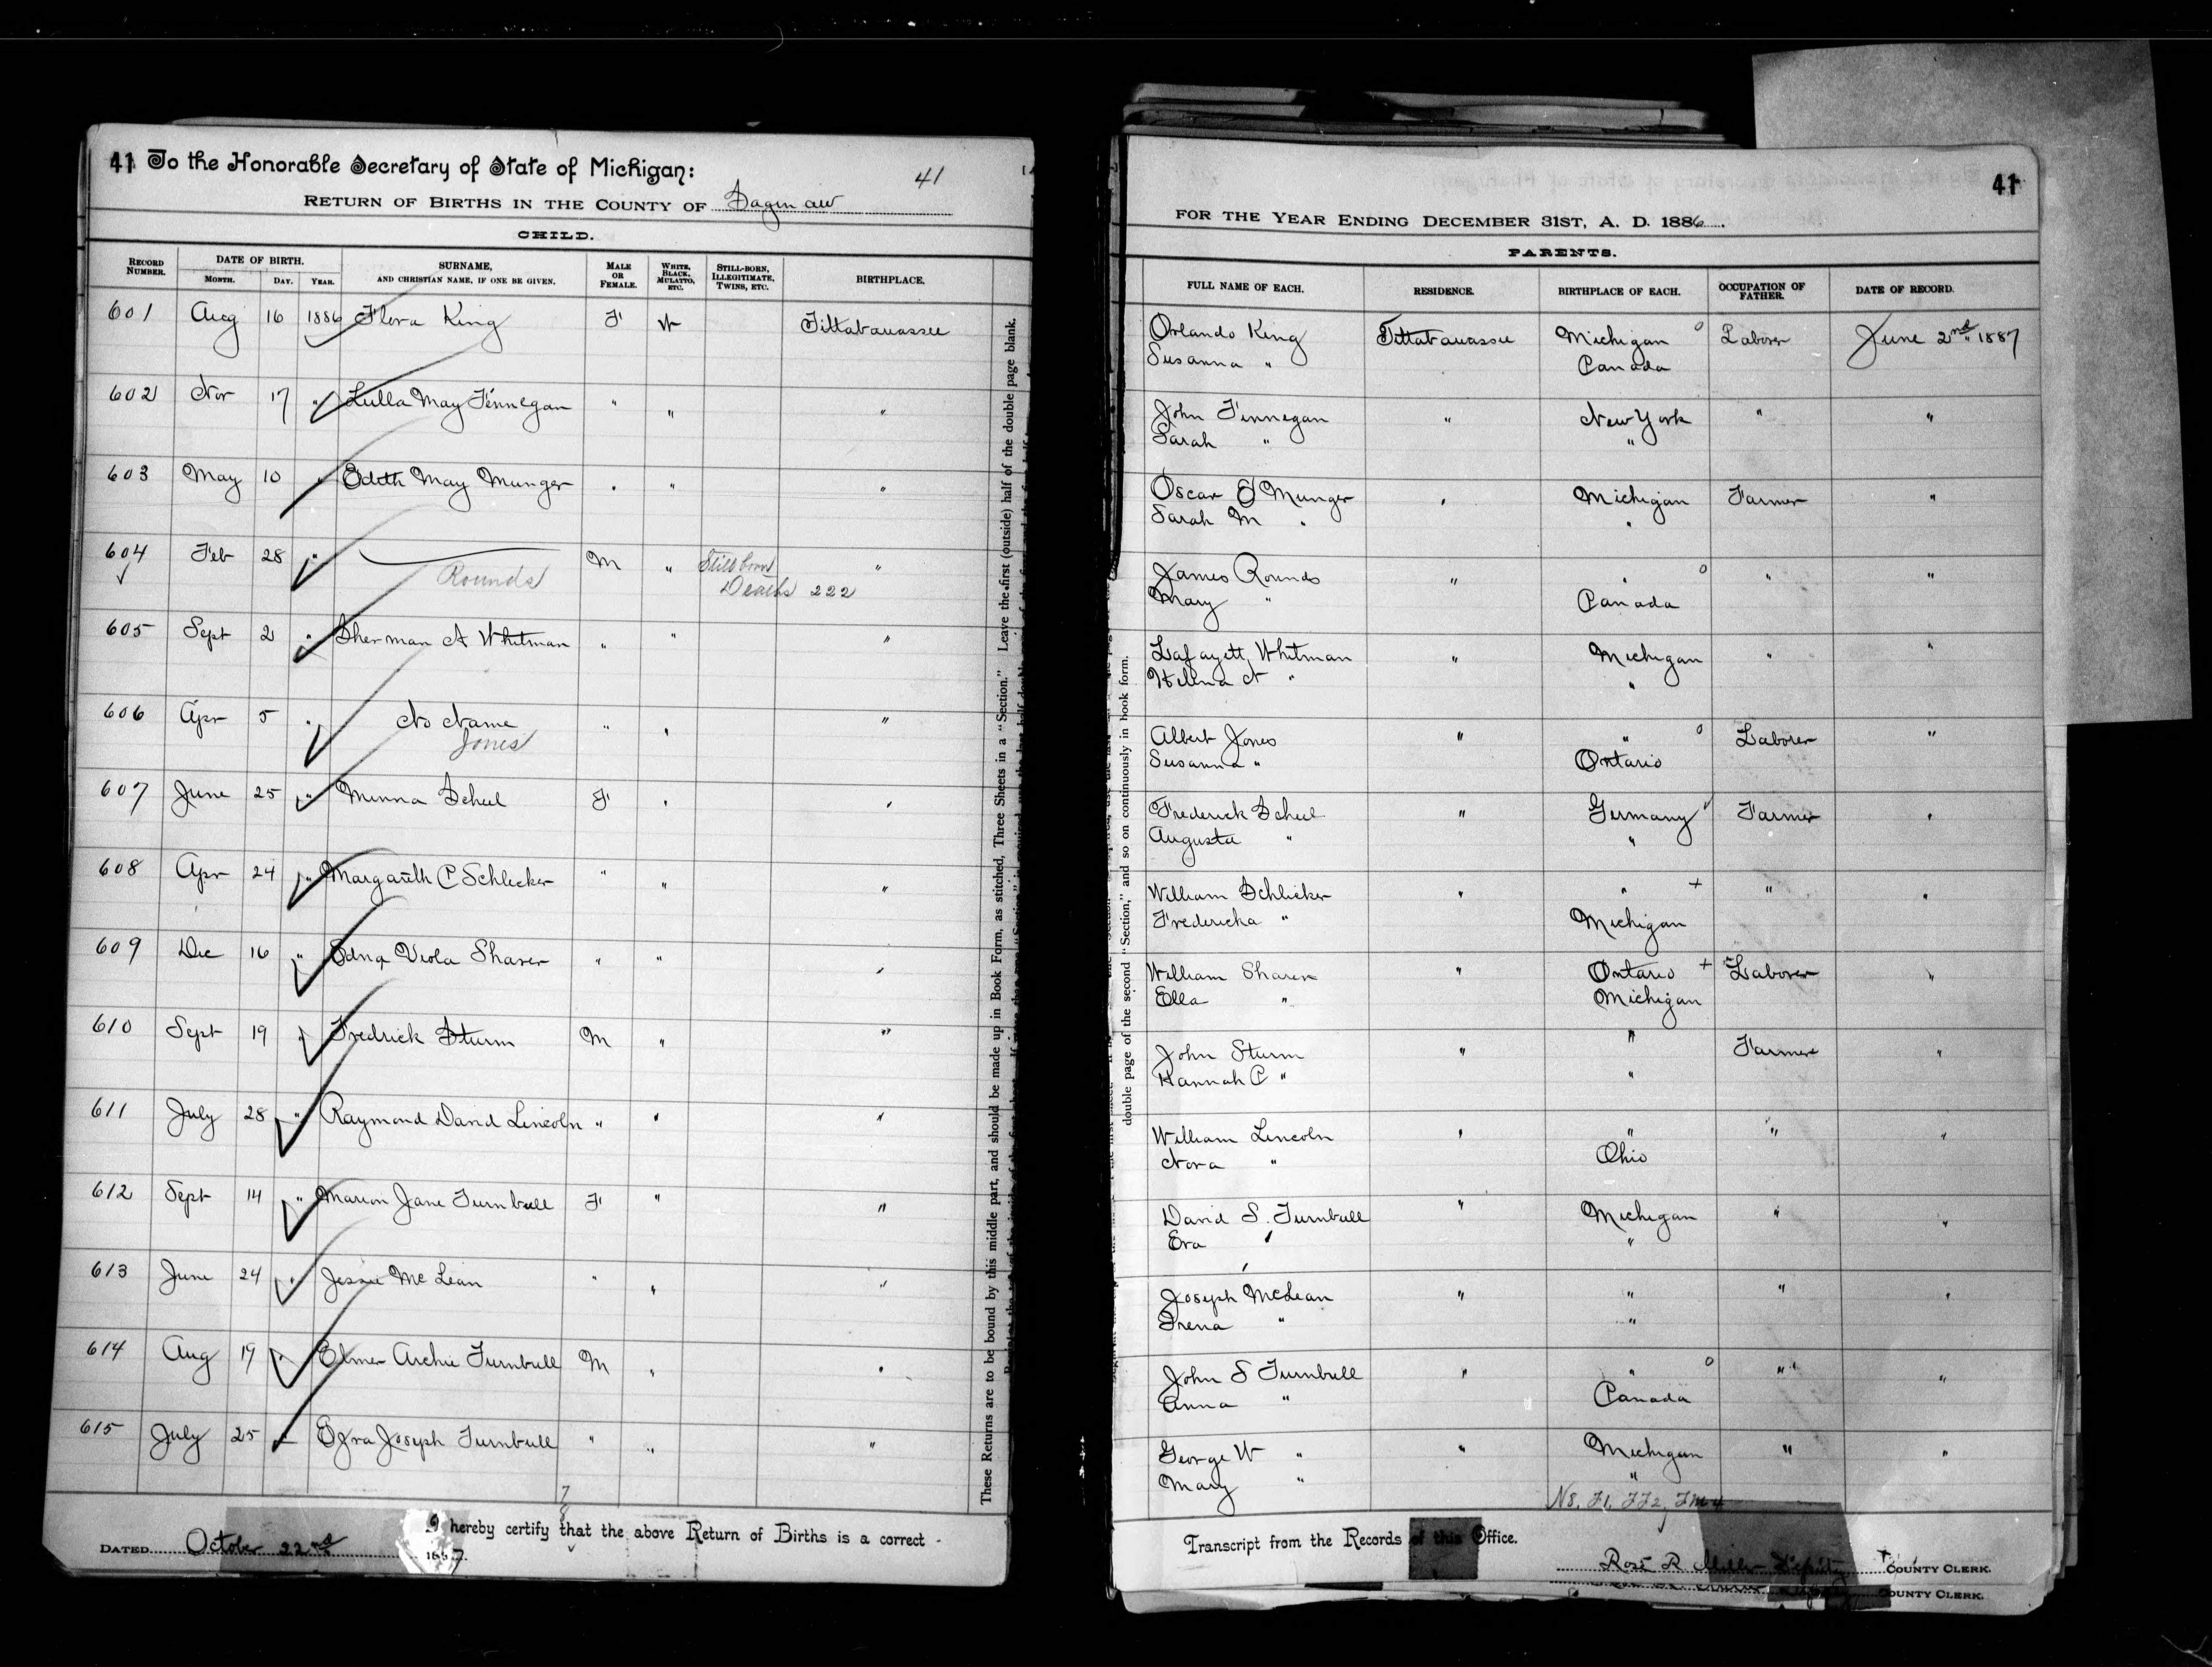 41 To the Honorable Secretary of State of Michigan: 41
RETURN OF BIRTHS IN THE COUNTY OF Saginaw
CHILD.
RECORD NUMBER. DATE OF BIRTH. MONTH. DAY. YEAR. SURNAME, AND CHRISTIAN NAME, IF ONE BE GIVEN. MALE OR FEMALE. WHITE, BLACK, MULATTO, ETC. STILL-BORN, ILLEGITIMATE, TWINS, ETC. BIRTHPLACE.
601 Aug 16 1886 Flora King F W Tittabawassee
602 Nov 17 " Lulla May Finnegan " " "
603 May 10 " Edith May Munger " " "
604 Feb 28 " Rounds M " Stillborn "
Deaths 222
605 Sept 2 " Sherman A Whitman " " "
606 Apr 5 " No Name " " "
Jones
607 June 25 " Minna Scheel F " "
608 Apr 24 " Margareth C Schlicker " " "
609 Dec 16 " Edna Viola Sharer " " "
610 Sept 19 " Fredrick Sturm M " "
611 July 28 " Raymond David Lincoln " " "
612 Sept 14 " Marion Jane Turnbull F " "
613 June 24 " Jessie McLean " " "
614 Aug 19 " Elmer Archie Turnbull M " "
615 July 25 " Ezra Joseph Turnbull " " "
7
8
I hereby certify that the above Return of Births is a correct
DATED October 22nd 1887.
These Returns are to be bound by this middle part, and should be made up in Book Form, as stitched, Three Sheets in a "Section." Leave the first (outside) half of the double page blank.
double page of the second "Section," and so on continuously in book form.
41
FOR THE YEAR ENDING DECEMBER 31ST, A. D. 1886.
PARENTS.
FULL NAME OF EACH. RESIDENCE. BIRTHPLACE OF EACH. OCCUPATION OF FATHER. DATE OF RECORD.
Orlando King Tittabawassee Michigan Laborer June 2nd 1887
Susanna " Canada
John Finnegan " New York " "
Sarah " "
Oscar E Munger " Michigan Farmer "
Sarah M " "
James Rounds " " " "
Mary " Canada
Lafayett Whitman " Michigan " "
Helena A " "
Albert Jones " " Laborer "
Susanna " Ontario
Frederick Scheel " Germany Farmer "
Augusta " "
William Schlicker " " " "
Fredericka " Michigan
William Sharer " Ontario Laborer "
Ella " Michigan
John Sturm " " Farmer "
Hannah C " "
William Lincoln " " " "
Nora " Ohio
David S. Turnbull " Michigan " "
Eva " "
Joseph McLean " " " "
Irena " "
John S Turnbull " " " "
Anna " Canada
George W " " Michigan " "
Mary " "
N8, F1, FF2, FM4
Transcript from the Records of this Office.
Ross R Miller Deputy COUNTY CLERK.
COUNTY CLERK.